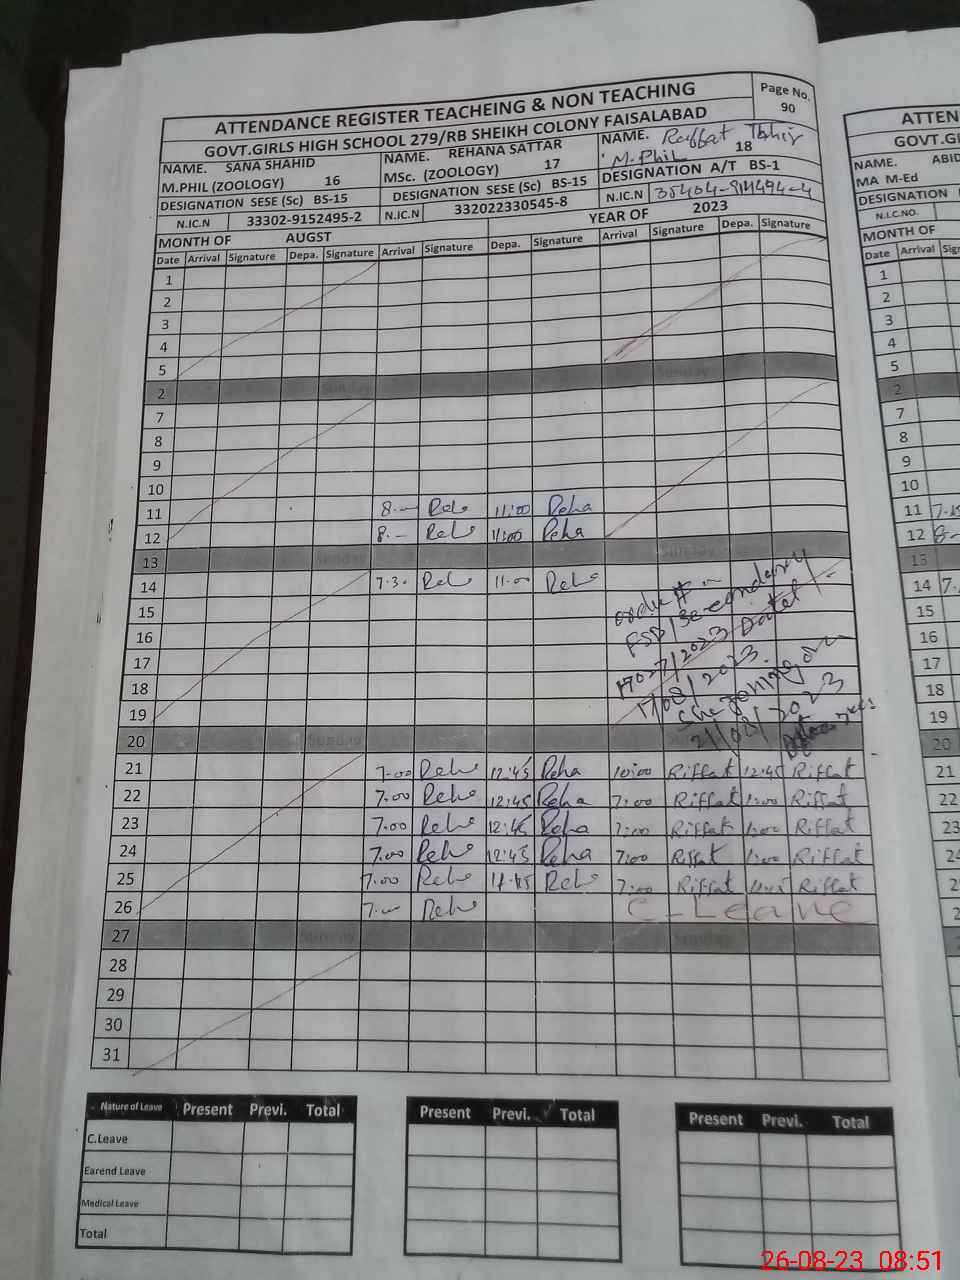 ATTENDANCE REGISTER TEACHEING & NON TEACHING
Page No.
90
GOVT.GIRLS HIGH SCHOOL 279/RB SHEIKH COLONY FAISALABAD
NAME. SANA SHAHID NAME. REHANA SATTAR NAME. Raffat Tahir
M.PHIL (ZOOLOGY) 16 MSc. (ZOOLOGY) 17 M.Phil 18
DESIGNATION SESE (Sc) BS-15 DESIGNATION SESE (Sc) BS-15 DESIGNATION A/T BS-1
N.IC.N 33302-9152495-2 N.IC.N 332022330545-8 N.IC.N
MONTH OF AUGST YEAR OF 2023
Date Arrival Signature Depa. Signature Arrival Signature Depa. Signature Arrival Signature Depa. Signature
1
2
3
4
5
2 Sunday Sunday
7
8
9
10
11 8.— Reh 11:00 Reha
12 8.— Reh 11:00 Reha
13 Sunday Sunday
14 7.30 Reh 11.00 Reh
15
16
17
18
19
order #
FSD/Secondary
17027/2023 Dated
17/08/2023.
She Joning on
21/08/2023
20 Sunday
21 7.00 Reh 12:45 Reha 10:00 Riffat 12:45 Riffat
22 7.00 Reh 12:45 Reha 7:00 Riffat 1:00 Riffat
23 7.00 Reh 12:45 Reha 7:00 Riffat 1:00 Riffat
24 7.00 Reh 12:45 Reha 7:00 Riffat 1:00 Riffat
25 7.00 Reh 11.45 Reh 7:00 Riffat 11:45 Riffat
26 7.— Reh C-Leave
27 Sunday Sunday
28
29
30
31
Nature of Leave Present Previ. Total Present Previ. Total Present Previ. Total
C.Leave
Earend Leave
Medical Leave
Total
ATTEN
GOVT.GI
NAME. ABID
MA M-Ed
DESIGNATION
N.I.C.NO.
MONTH OF
Date Arrival Sig
1
2
3
4
5
2
7
8
9
10
11
12
13
14
15
16
17
18
19
20
21
22
23
26-08-23 08:51